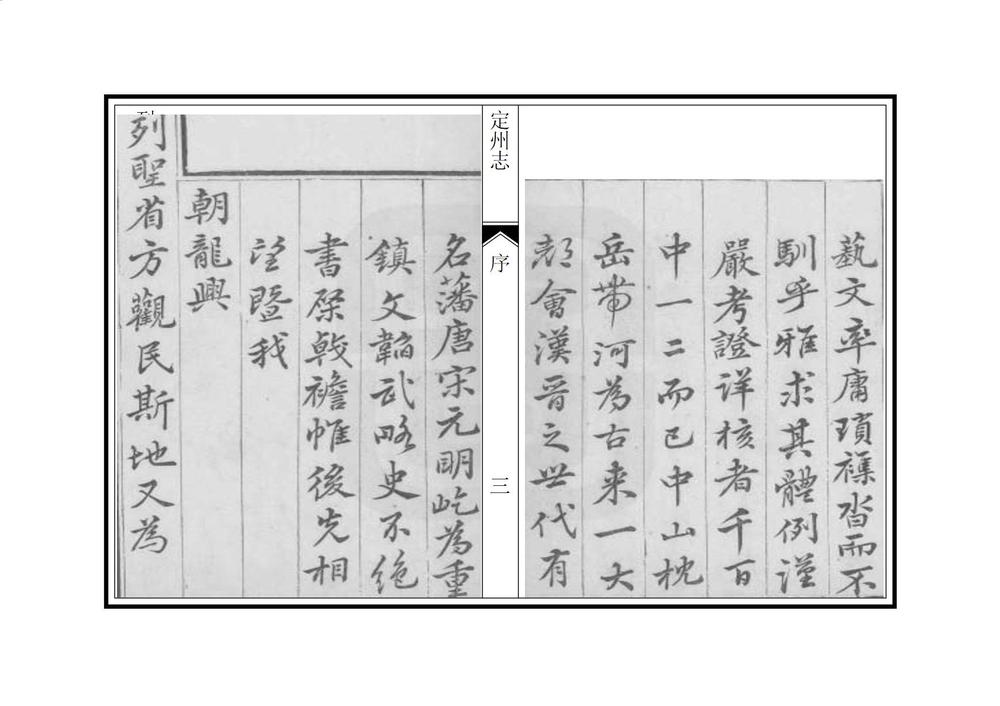 藝文率庸瑣襍沓而不
馴乎雅求其體例謹
嚴考證詳核者千百
中一二而已中山枕
岳帶河為古來一大
都會漢晉之世代有
定州志
序
三
名藩唐宋元明屹為重
鎮文韜武略史不絕
書棨戟襜帷後先相
望暨我
朝龍興
列聖省方觀民斯地又為